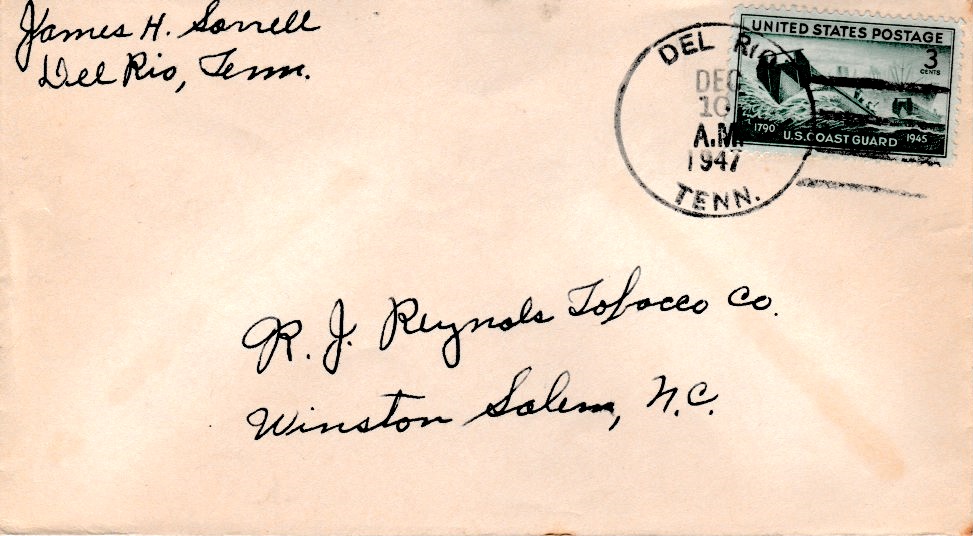 James H. Sorrell
Del Rio, Tenn.
DEL RIO
DEC
10
A.M.
1947
TENN.
UNITED STATES POSTAGE
3
CENTS
1790 U.S. COAST GUARD 1945
R. J. Reynols Tobacco Co.
Winston Salem, N.C.